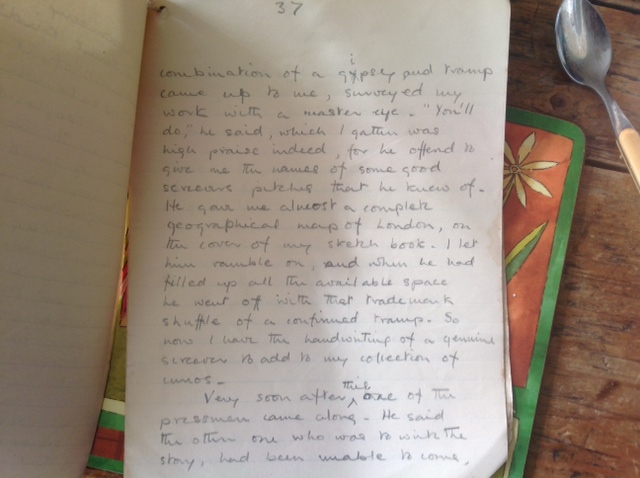 37
combination of a gipsy and tramp
came up to me, surveyed my
work with a master eye. "You'll
do," he said, which I gather was
high praise indeed, for he offered to
give me the names of some good
screevers pitches that he knew of.
He gave me almost a complete
geographical map of London, on
the cover of my sketch book. I let
him ramble on, and when he had
filled up all the available space
he went off with that trademark
shuffle of a confirmed tramp. So
now I have the handwriting of a genuine
screever to add to my collection of
curios.
Very soon after this, one of the
pressmen came along. He said
the other one who was to write the
story, had been unable to come,